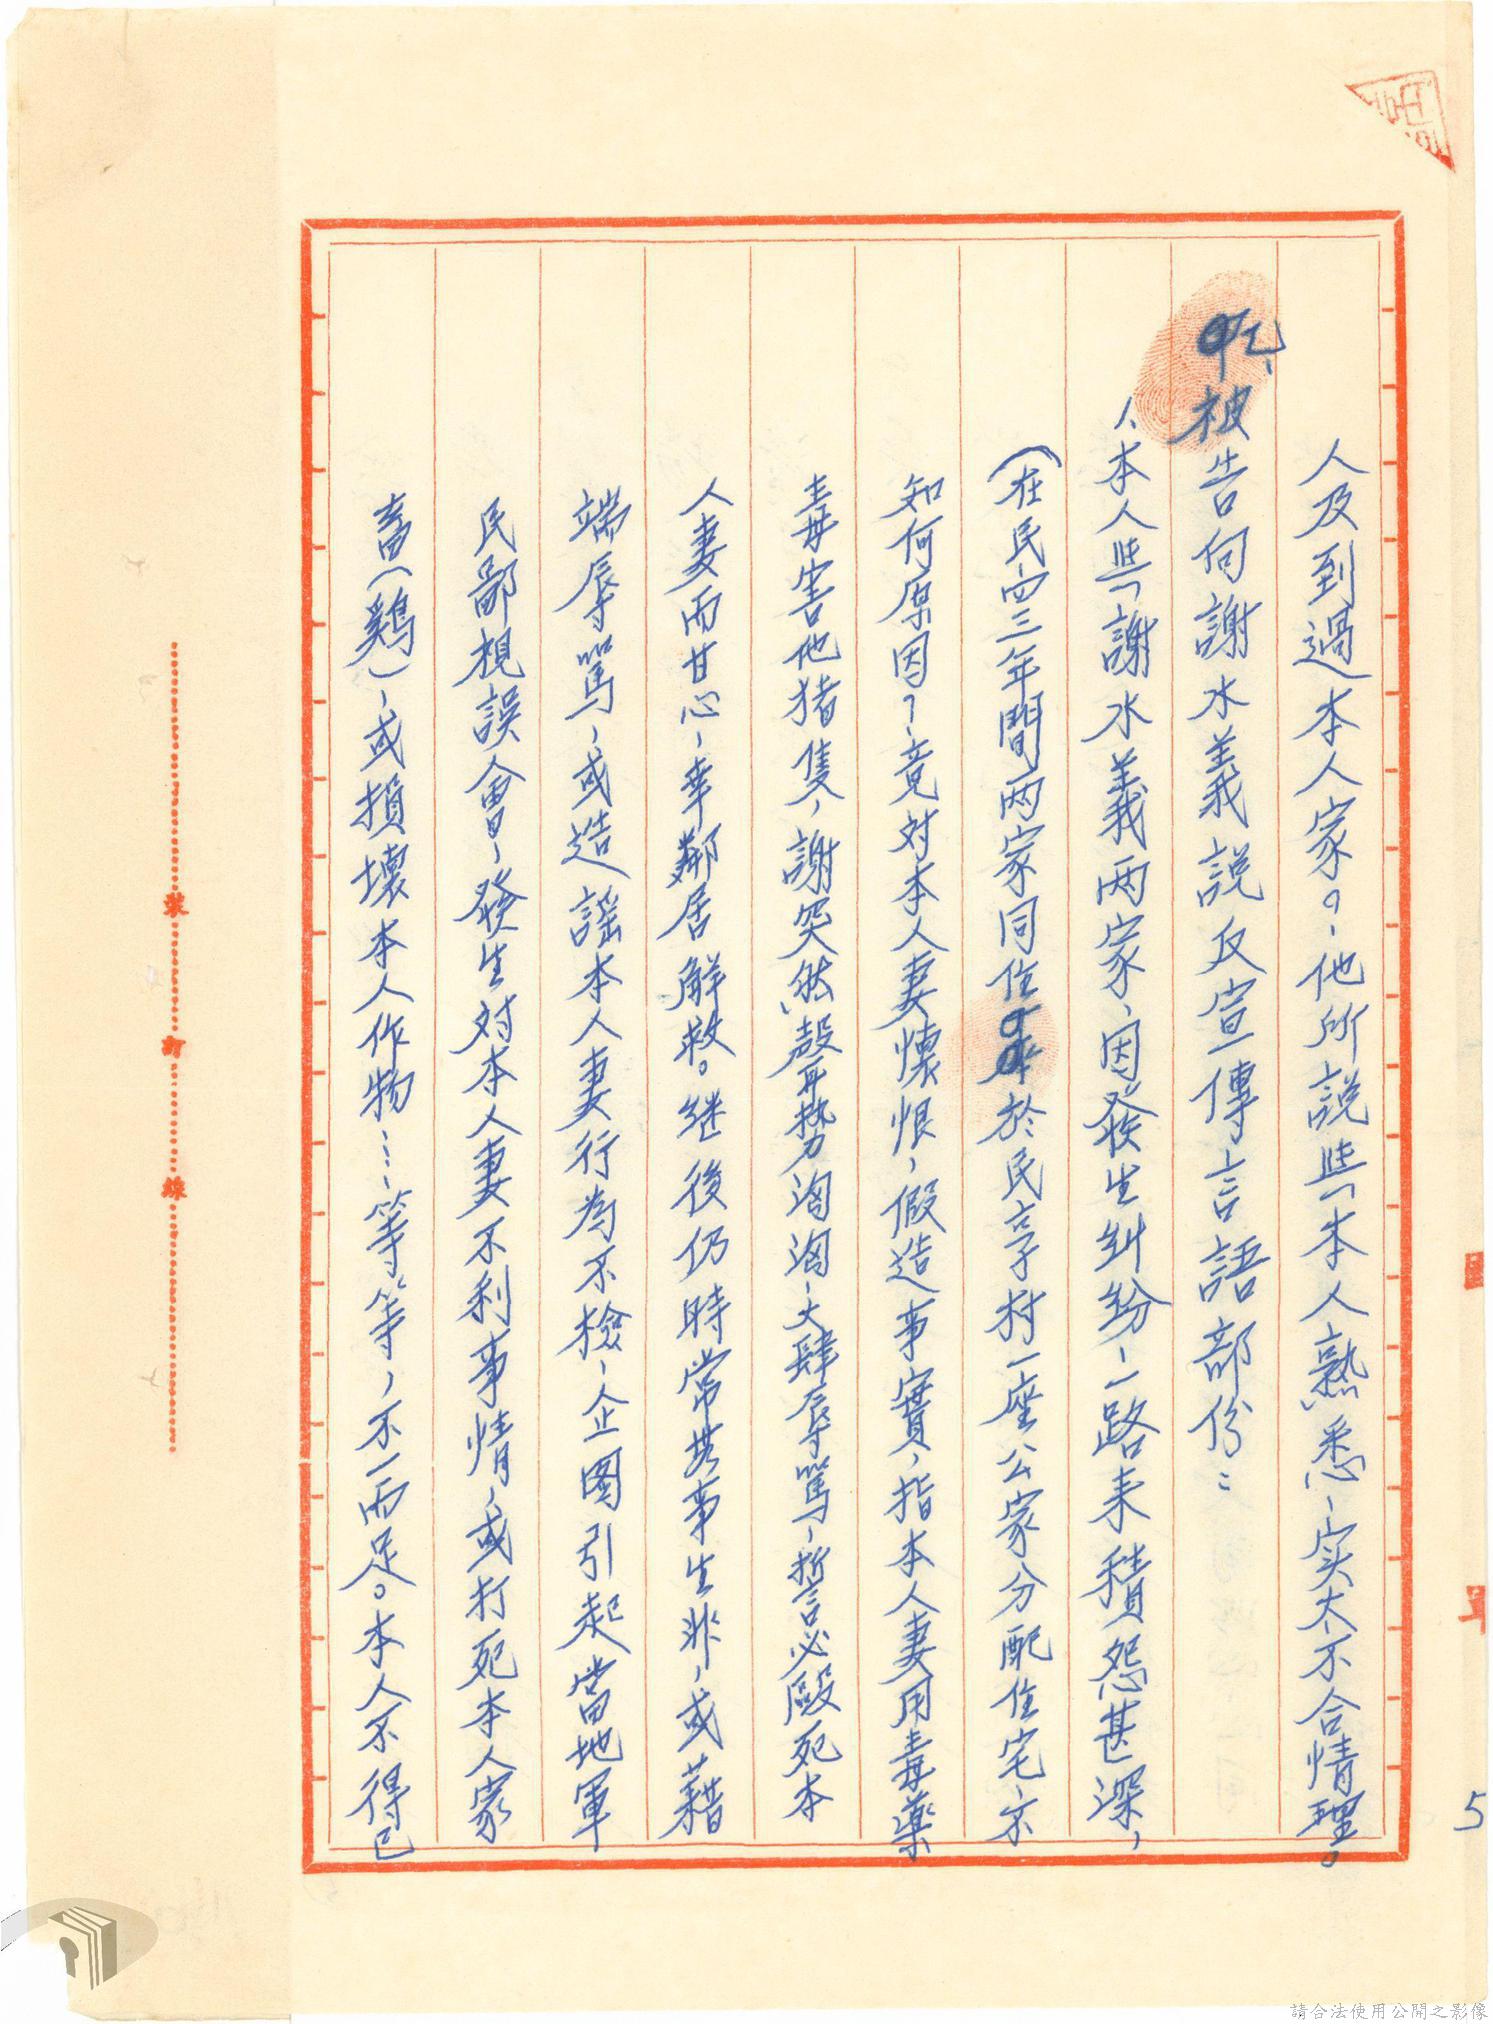 人及到過本人家。他所説與本人熟悉、实太不合情理。
乙、被告向謝水義説反宣傳言語部份：
1、本人與謝水義两家、因發生糾紛、一路来積怨甚深，
（在民四三年間两家同住於民享村一座公家分配住宅、不
知何原因？竟对本人妻懷恨，假造事實，指本人妻用毒藥
毒害他猪隻，謝突然聲势洶洶、大肆辱罵、誓言必毆死本
人妻而甘心、幸鄰居解救。继後仍時常惹事生非，或藉
端辱罵，或造謠本人妻行為不檢、企图引起當地軍
民鄙視誤會、發生对本人妻不利事情，或打死本人家
畜（鷄），或損壞本人作物……等等，不一而足。本人不得已
裝
訂
線
5
請合法使用公開之影像